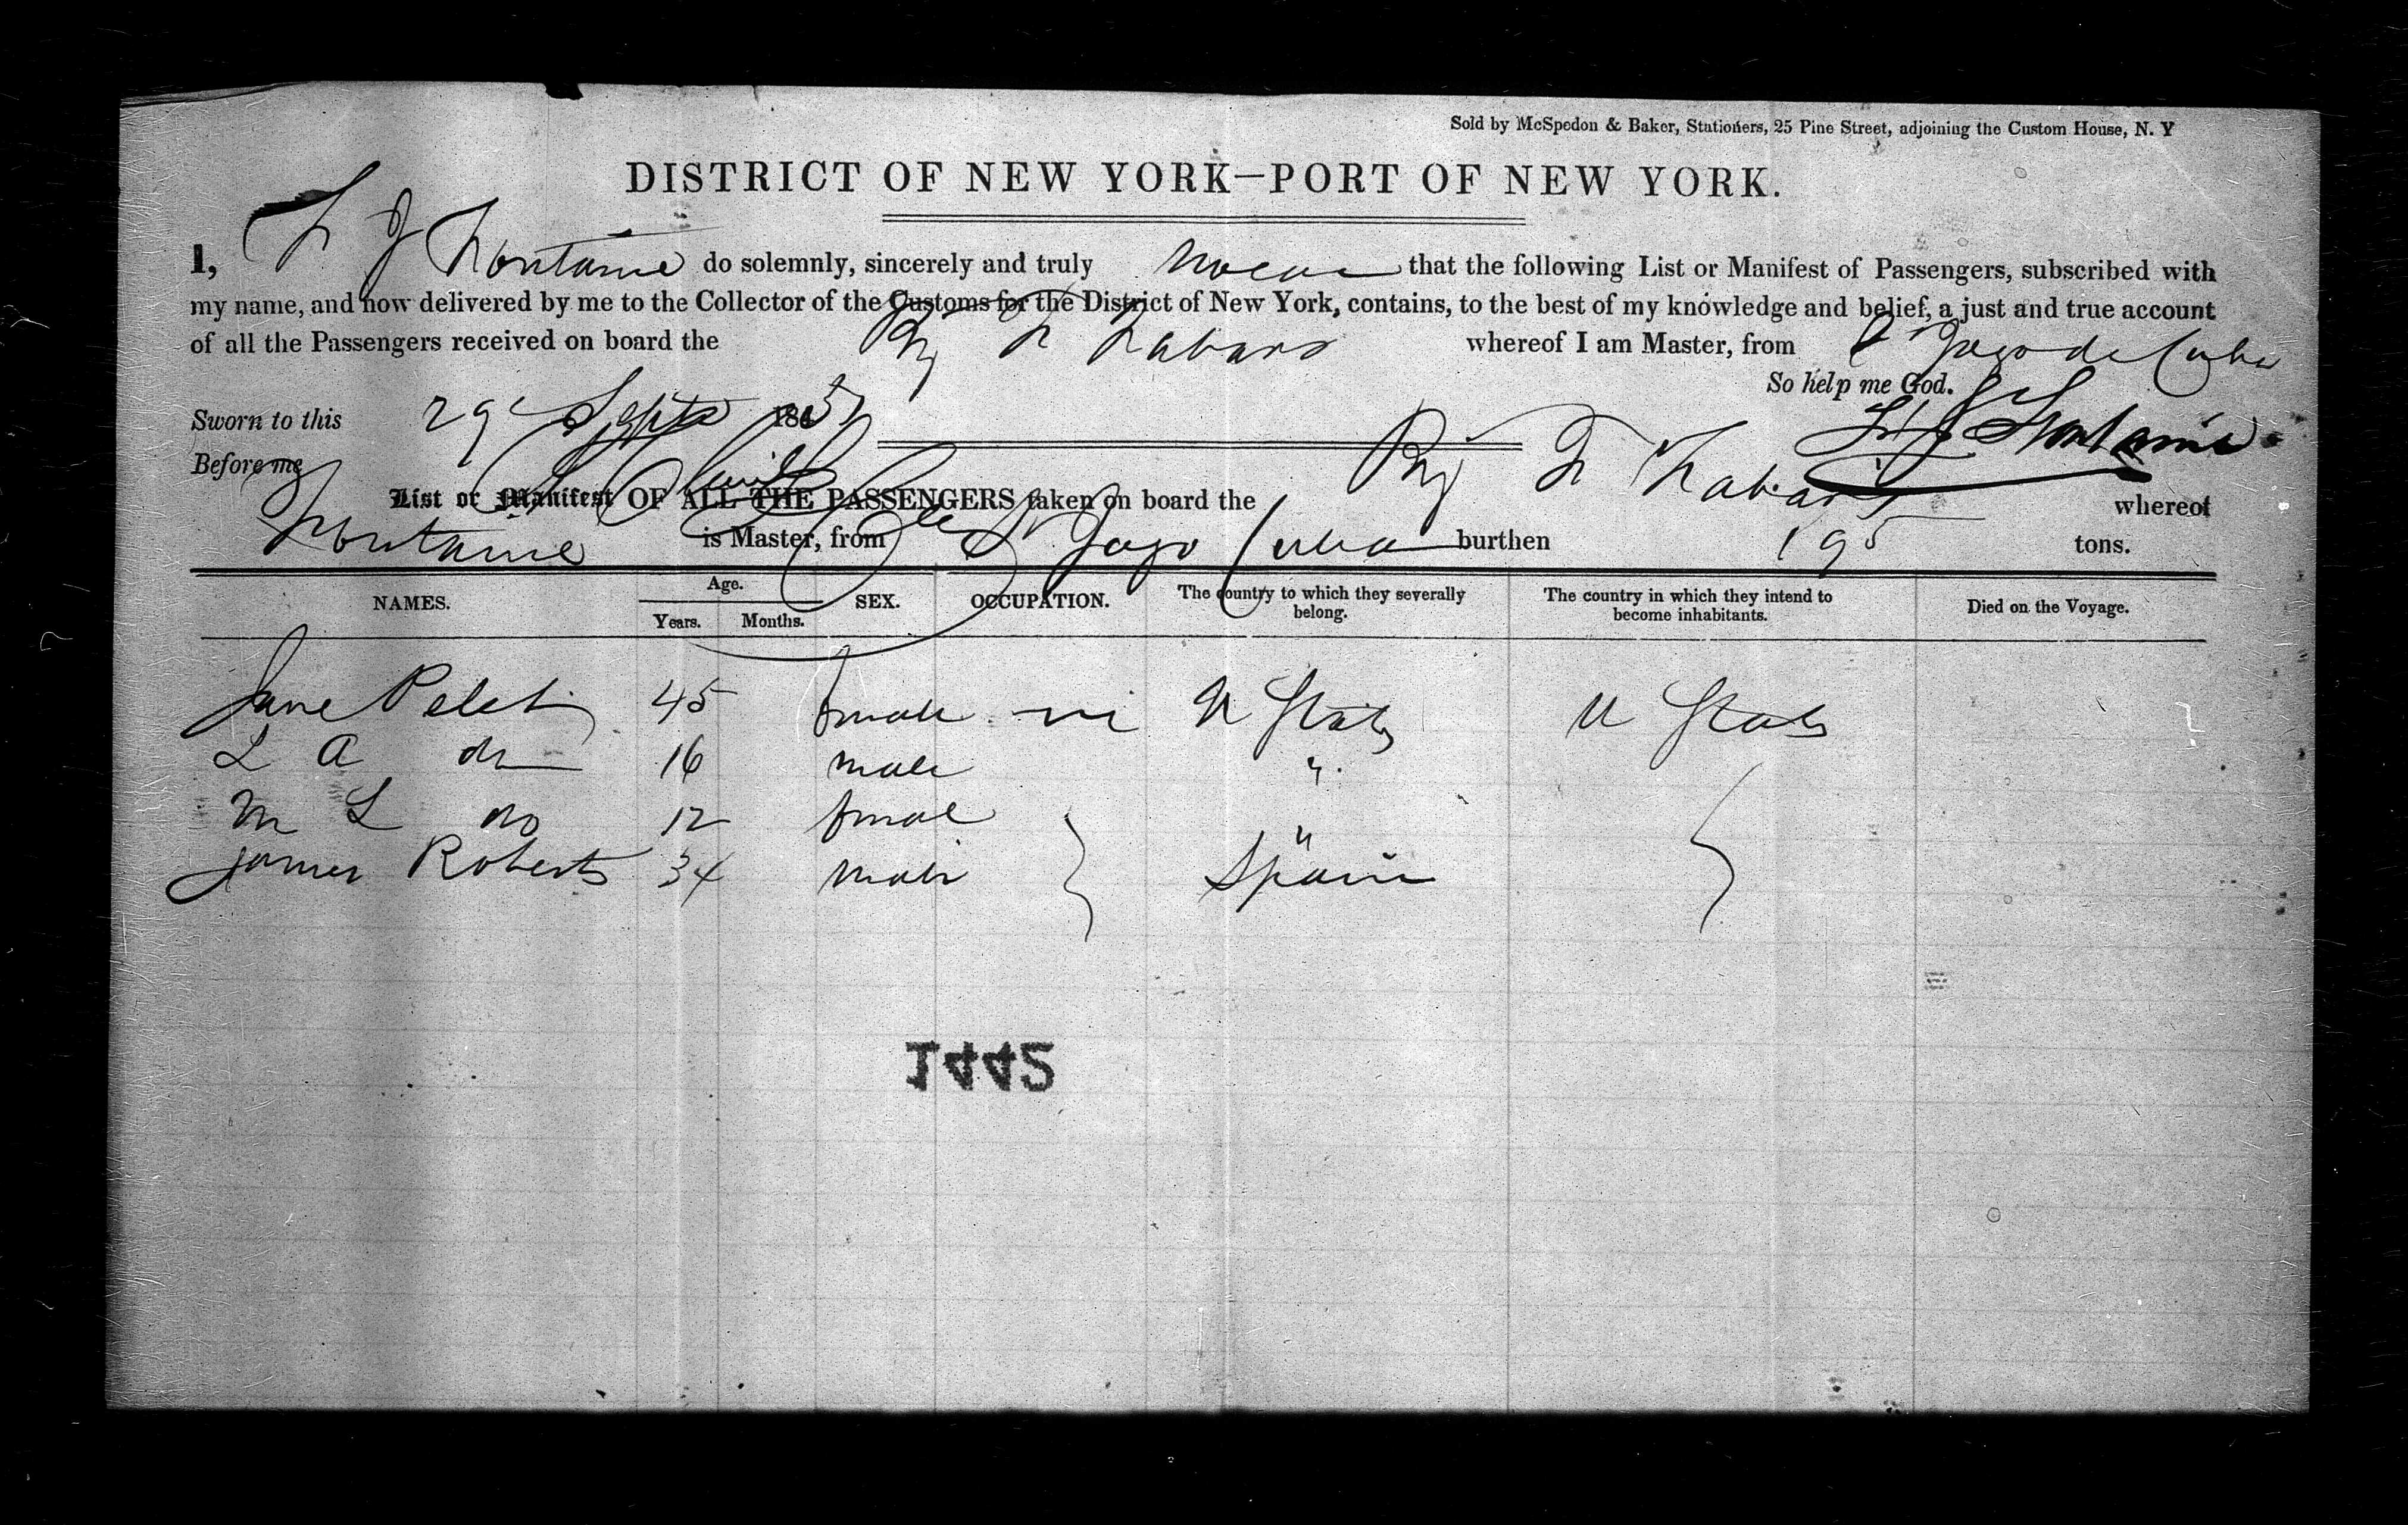 Sold by McSpedon & Baker, Stationers, 25 Pine Street, adjoining the Custom House, N. Y
DISTRICT OF NEW YORK—PORT OF NEW YORK.
I, F J Fontaine do solemnly, sincerely and truly swear that the following List or Manifest of Passengers, subscribed with
my name, and now delivered by me to the Collector of the Customs for the District of New York, contains, to the best of my knowledge and belief, a just and true account
of all the Passengers received on board the Brig whereof I am Master, from St Jago de Cuba
So help me God.
Sworn to this 29 Septr 185
Before me
List or Manifest OF ALL THE PASSENGERS taken on board the Brig whereof
Fontaine is Master, from St Jago Cuba burthen 195 tons.
NAMES. Age. SEX. OCCUPATION. The country to which they severally belong. The country in which they intend to become inhabitants. Died on the Voyage.
Years. Months.
Jane 45 female U States U States
L A do 16 male "
M L do 12 female "
James Roberts 34 male Spain
1445